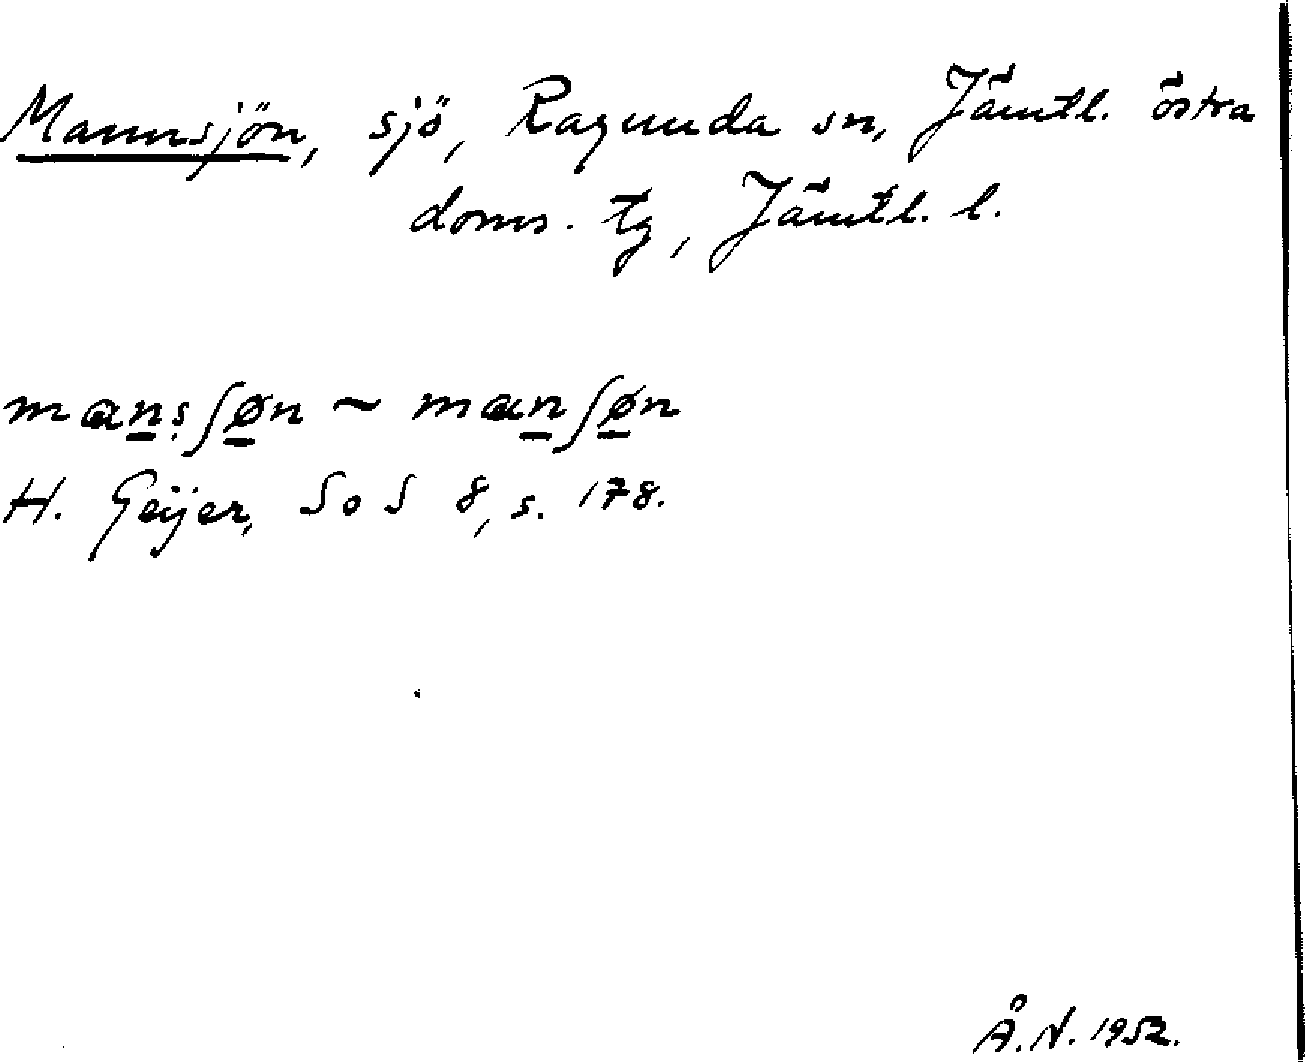 Mannsjön, sjö, Ragunda sn, Jämtl. östra
doms. tg, Jämtl. l.
manṣʃøn ~ manʃøn
H. Geijer, SoS 8, s. 178.
Å.N. 1952.